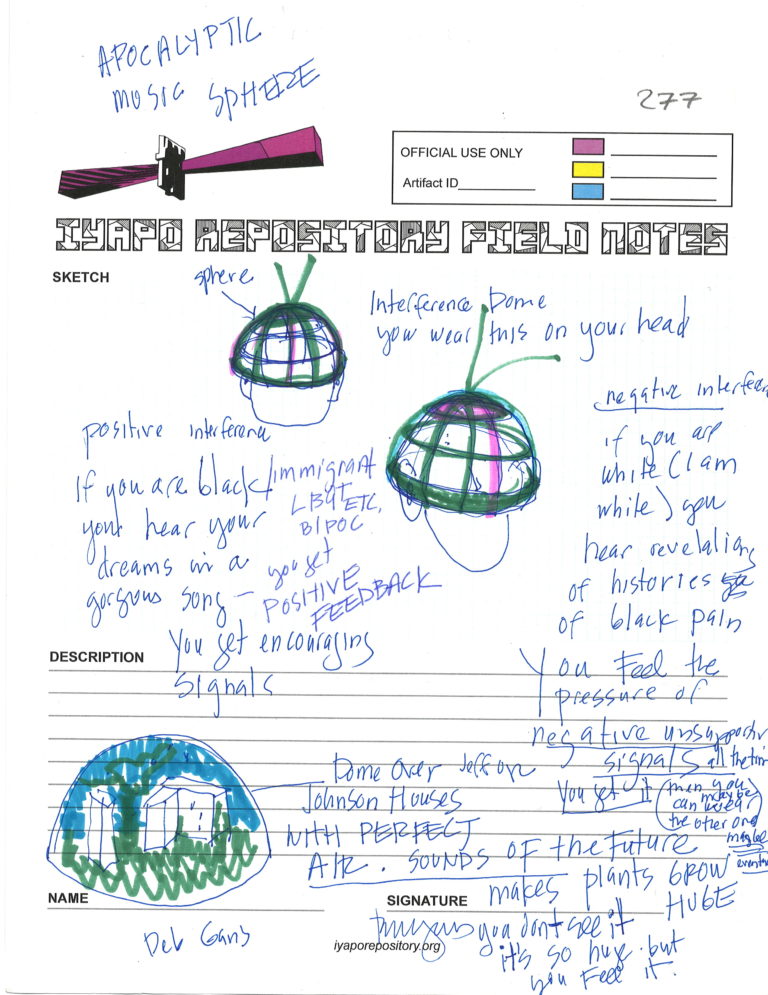 APOCALYPTIC
MUSIC SPHERE
277
OFFICIAL USE ONLY
Artifact ID
IYAPO REPOSITORY FIELD NOTES
SKETCH
sphere
Interference Dome
you wear this on your head
positive interference
If you are black/immigrant
LBGT ETC.
BIPOC
your hear your
dreams in a
gorgeous song - you get
POSITIVE
FEEDBACK
You get encouraging
signals
negative interferen
if you are
white (I am
white) you
hear revelations
of histories
of black pain
DESCRIPTION
You Feel the
pressure of
negative unsupportive
signals all the time
You get it
then you
maybe
can wear
the other one
maybe
eventu
Dome over Jefferson
Johnson Houses
WITH PERFECT
AIR. SOUNDS OF the Future
makes plants GROW
HUGE
you dont see it
it's so huge. but
you Feel it.
NAME
Deb Gans
SIGNATURE
iyaporepository.org